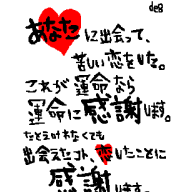 deg
あなたに出会って、
苦しい恋をした。
これが運命なら
運命に感謝します。
たとえ叶わなくても
出会えたコト、恋したことに
感謝します。